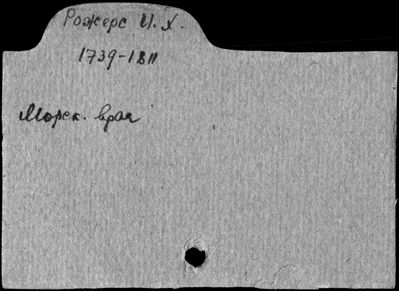 Рожерс И. Х.
1739-1811
Морск. врач